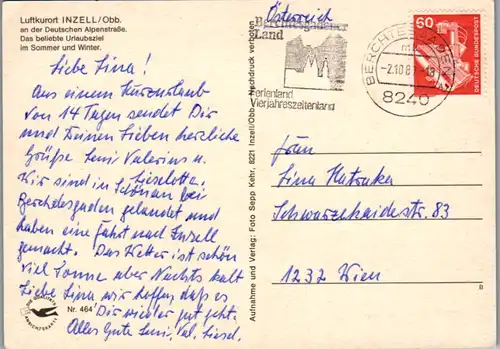 Luftkurort INZELL/Obb.
an der Deutschen Alpenstraße.
Das beliebte Urlaubsziel
im Sommer und Winter.
Liebe Lina!
Aus einem Kurzurlaub
von 14 Tagen sendet Dir
und Deinen Lieben herzliche
Grüße Leni Valerius u.
Lieselotte.
Wir sind in Schönau bei
Berchtesgaden gelandet und
haben eine Fahrt nach Inzell
gemacht. Das Wetter ist schön
viel Sonne aber Nachts kalt
Liebe Lina wir hoffen daß es
Dir wieder gut geht.
Alles Gute Leni, Val. Liesel.
Nr. 464
Aufnahme und Verlag: Foto Sepp Kehr, 8221 Inzell/Obb. Nachdruck verboten
Österreich
Berchtesgadener
Land
Ferienland
Vierjahreszeitenland
BERCHTESGADEN
8240
60
DEUTSCHE BUNDESPOST
Lina
Schwarzehaidestr. 83
1232 Wien